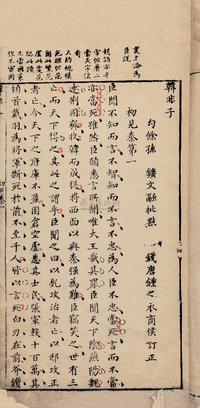 韓非子
勾餘孫　鑛文融批點
錢唐
訂正
初見秦第一
臣聞不知而言不智知而不言不忠為人臣不忠當死言而不當
亦當死雖然臣願悉言所聞唯大王裁其罪臣聞天下陰燕陽魏
連荊固齊收韓而成從將西面以與秦強為難臣竊笑之世有三
亡而天下得之其此之謂乎臣聞之曰以亂攻治者亡以邪攻正
者亡今天下之府庫不盈囷倉空虛悉其士民張軍數十百萬其
頓首戴羽為將軍斷死於前不至千人皆以言死白刃在前斧鑕